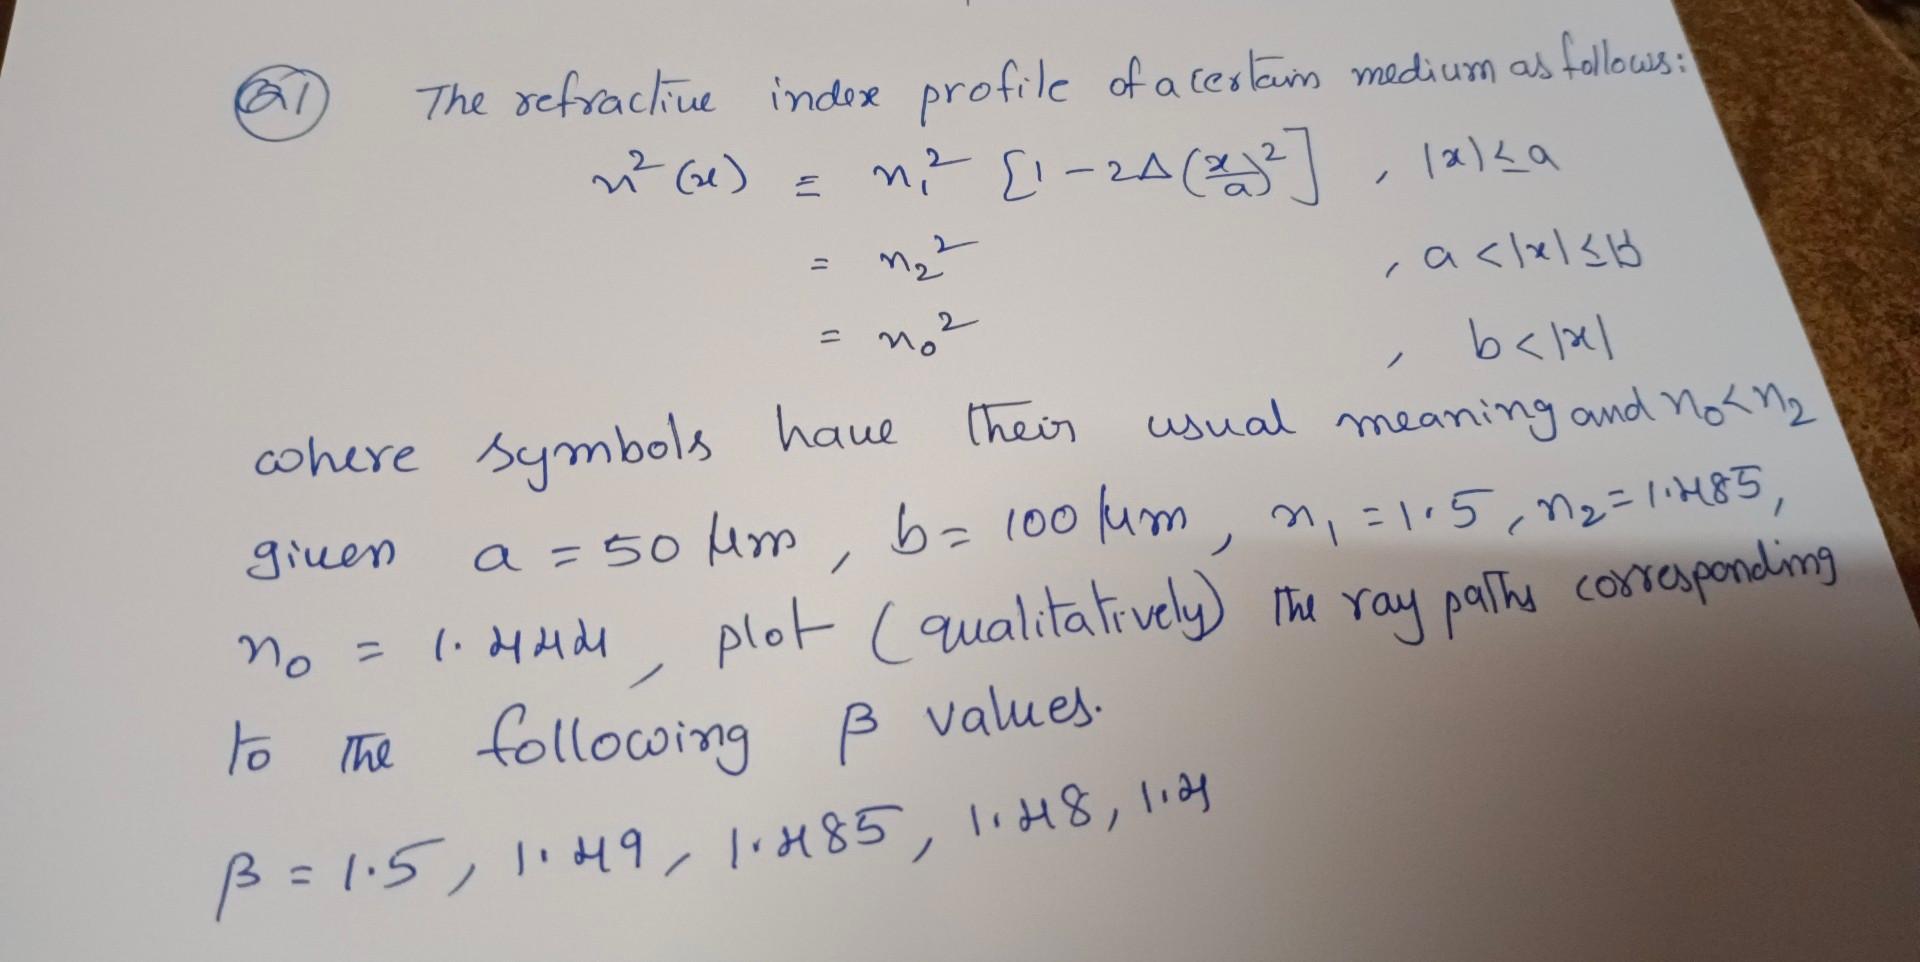 Q1 The refractive index profile of a certain medium as follows:
n²(x) = n₁² [1 - 2Δ(x/a)²] , |x| ≤ a
= n₂² , a < |x| ≤ b
= n₀² , b < |x|
where symbols have their usual meaning and n₀ < n₂
given a = 50 μm , b = 100 μm , n₁ = 1.5 , n₂ = 1.485,
n₀ = 1.444 , plot (qualitatively) the ray paths corresponding
to the following β values.
β = 1.5 , 1.49 , 1.485 , 1.48 , 1.4